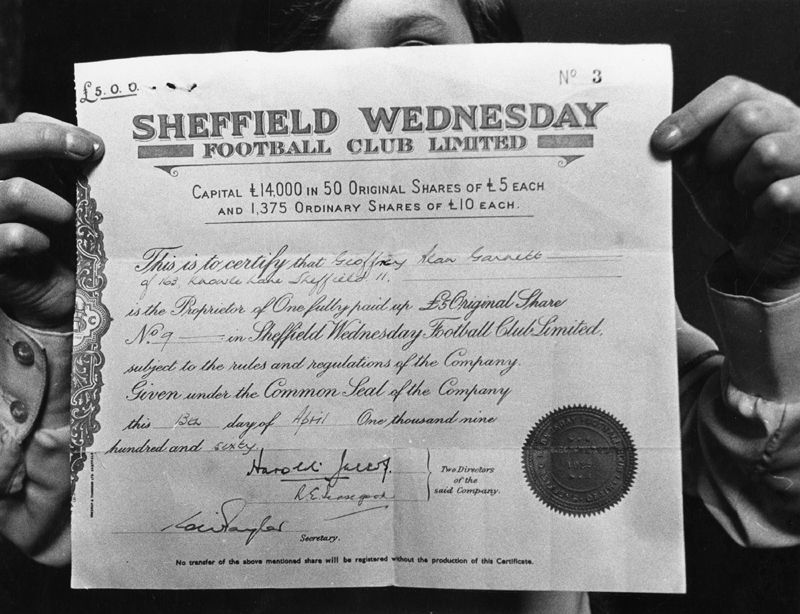 £5. 0. 0.
Nº 3
SHEFFIELD WEDNESDAY
FOOTBALL CLUB LIMITED
CAPITAL £14,000 IN 50 ORIGINAL SHARES OF £5 EACH
AND 1,375 ORDINARY SHARES OF £10 EACH.
This is to certify that Geoffrey Alan Garnett
of 163, Knowle Lane Sheffield 11.
is the Proprietor of One fully paid up £5 Original Share
No. 9 in Sheffield Wednesday Football Club Limited,
subject to the rules and regulations of the Company.
Given under the Common Seal of the Company
this 13th day of April One thousand nine
hundred and sixty.
Harold
Two Directors
of the
said Company.
Eric Taylor
Secretary.
No transfer of the above mentioned share will be registered without the production of this Certificate.